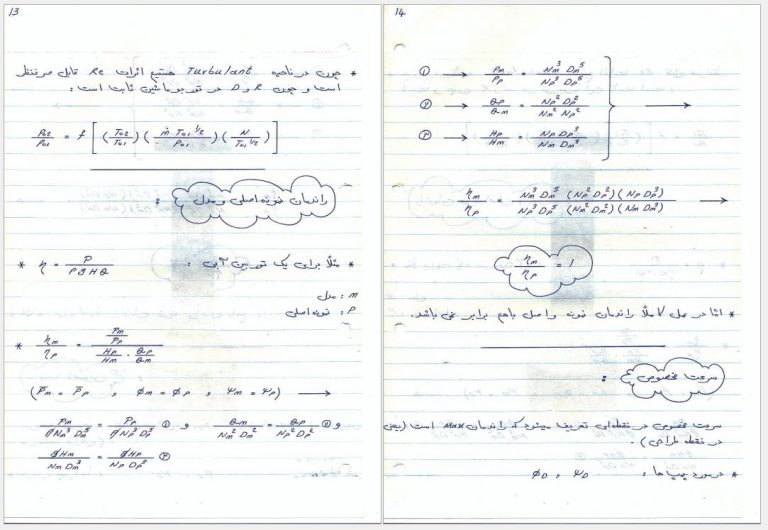 13
* چون در ناحیه Turbulant هستیم اثرات Re قابل صرفنظر
است و چون R و D در توربوماشین ثابت است :
P02/P01 = f [ (T02/T01) ( ṁ T01^1/2 / P01 ) ( N / T01^1/2 ) ]
راندمان نمونه اصلی و مدل :
* مثلاً برای یک توربین آبی : η = P / ρgHQ
m : مدل
P : نمونه اصلی
* ηm/ηp = (Pm/Pp) / (Hp/Hm · Qp/Qm)
(P̄m = P̄p , φm = φp , ψm = ψp) →
Pm / ρNm³Dm⁵ = Pp / ρNp³Dp⁵ ① و Qm / Nm²Dm² = Qp / Np²Dp² ② و
gHm / NmDm³ = gHp / NpDp³ ③
14
① → Pm/Pp = Nm³Dm⁵ / Np³Dp⁵
② → Qp/Qm = Np²Dp² / Nm²Np²
③ → Hp/Hm = NpDp³ / NmDm³
→
ηm/ηp = Nm³Dm⁵ (Np²Dp²)(NpDp³) / Np³Dp⁵ (Nm²Dm²)(NmDm³) →
ηm/ηp = 1
* امّا در عمل کاملاً راندمان نمونه و اصل باهم برابر نمی باشد.
سرعت مخصوص :
سرعت مخصوص در نقطه‌ای تعریف میشود که راندمان max است (یعنی
در نقطه طراحی).
* در مورد پمپ ها : φD , ψD